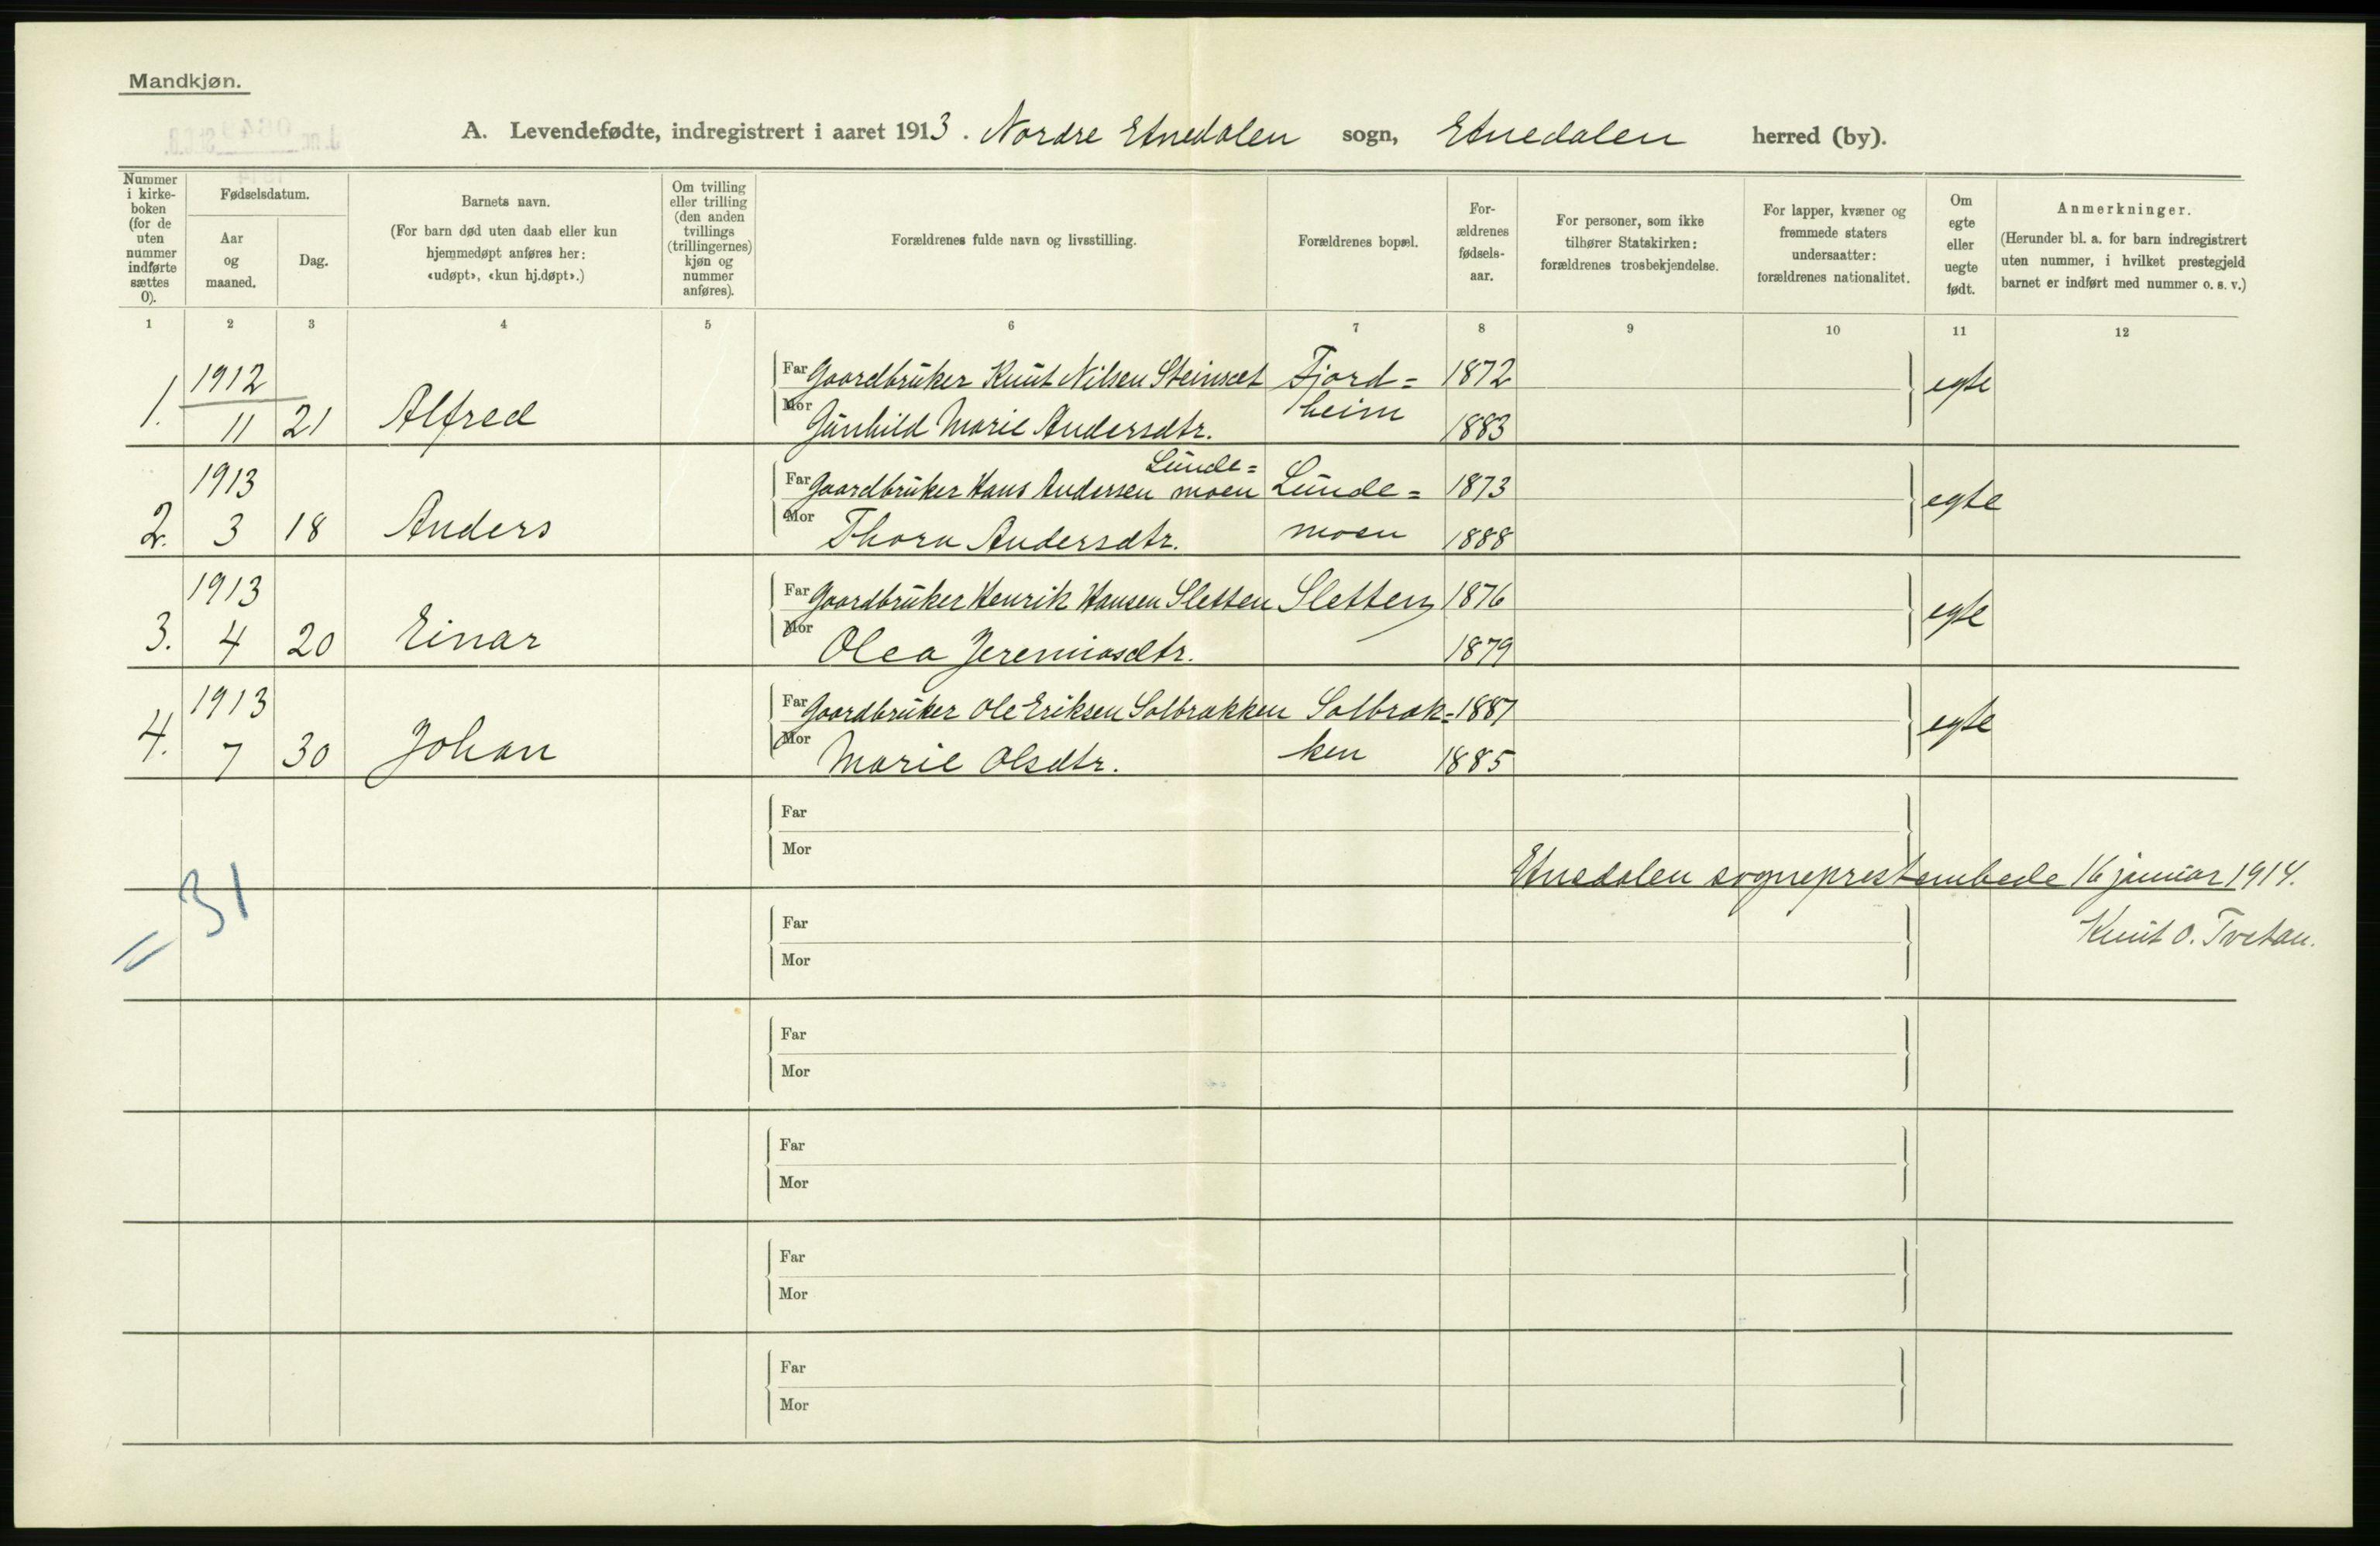 Mandkjøn.
A. Levendefødte, indregistrert i aaret 1913. Nordre Etnedalen sogn, Etnedalen herred (by).
Nummer i kirke-boken (for de uten nummer indførte sættes 0).
Fødselsdatum.
Aar og maaned.
Dag.
Barnets navn.
(For barn død uten daab eller kun hjemmedøpt anføres her: «udøpt», «kun hj.døpt».)
Om tvilling eller trilling (den anden tvillings (trillingernes) kjøn og nummer anføres).
Forældrenes fulde navn og livsstilling.
Forældrenes bopæl.
For-ældrenes fødsels-aar.
For personer, som ikke tilhører Statskirken: forældrenes trosbekjendelse.
For lapper, kvæner og fremmede staters undersaatter: forældrenes nationalitet.
Om egte eller uegte født.
Anmerkninger.
(Herunder bl. a. for barn indregistrert uten nummer, i hvilket prestegjeld barnet er indført med nummer o. s. v.)
1 2 3 4 5 6 7 8 9 10 11 12
1912
Far Gaardbruker Knut Nilsen Steinsæt Fjord= 1872
1. 11 21 Alfred egte
Mor Gunhild Marie Andersdtr. heim 1883
Lunde=
1913 Far Gaardbruker Hans Andersen moen Lunde= 1873
2. 3 18 Anders egte
Mor Thora Andersdtr. moen 1888
1913 Far Gaardbruker Henrik Hansen Sletten Sletten 1876
3. 4 20 Einar egte
Mor Olea Jeremiasdtr. 1879
1913 Far Gaardbruker Ole Eriksen Solbrakken Solbrak= 1887
4. 7 30 Johan egte
Mor Marie Olsdtr. ken 1885
Far
Mor
Etnedalen sogneprestembede 16 januar 1914.
31
Far
Knut O. Tvetan.
Mor
Far
Mor
Far
Mor
Far
Mor
Far
Mor